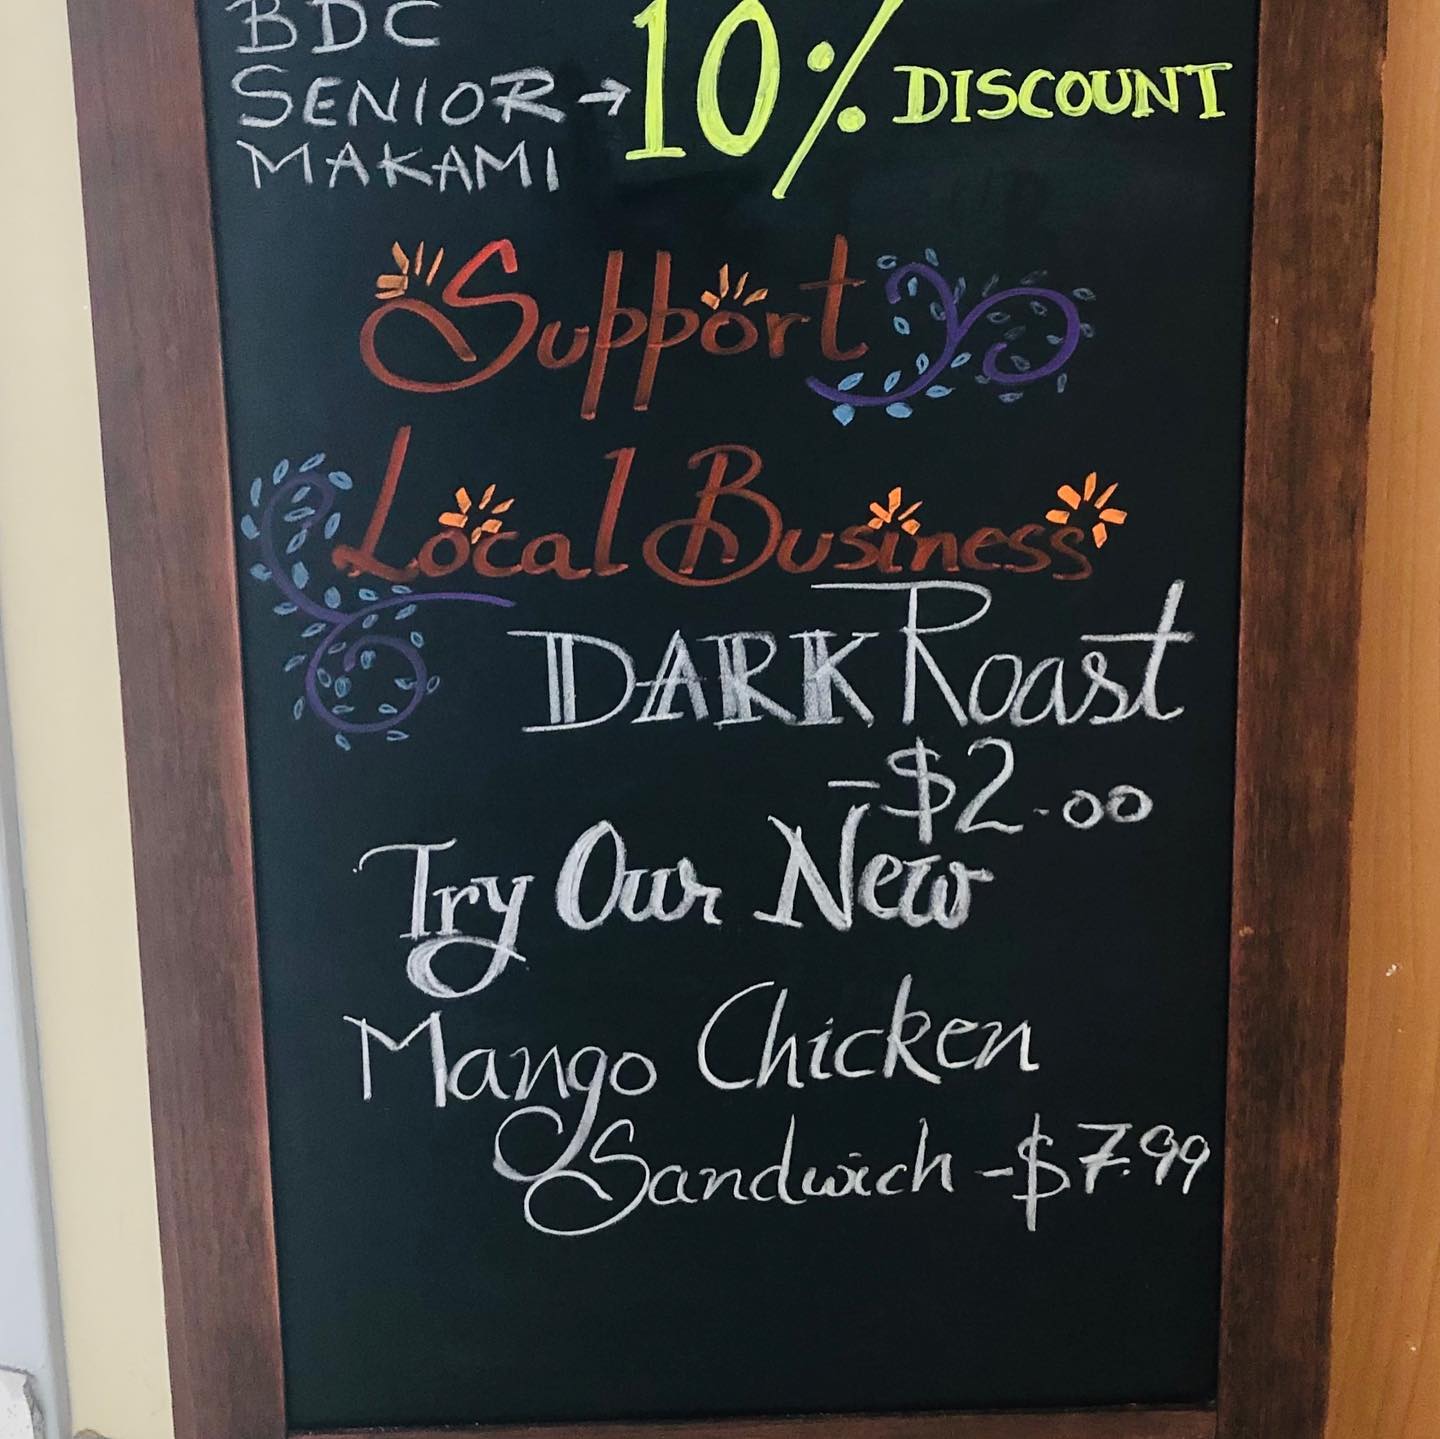 BDC
SENIOR → 10% DISCOUNT
MAKAMI
Support
Local Business
DARK Roast
-$2.00
Try Our New
Mango Chicken
Sandwich -$7.99